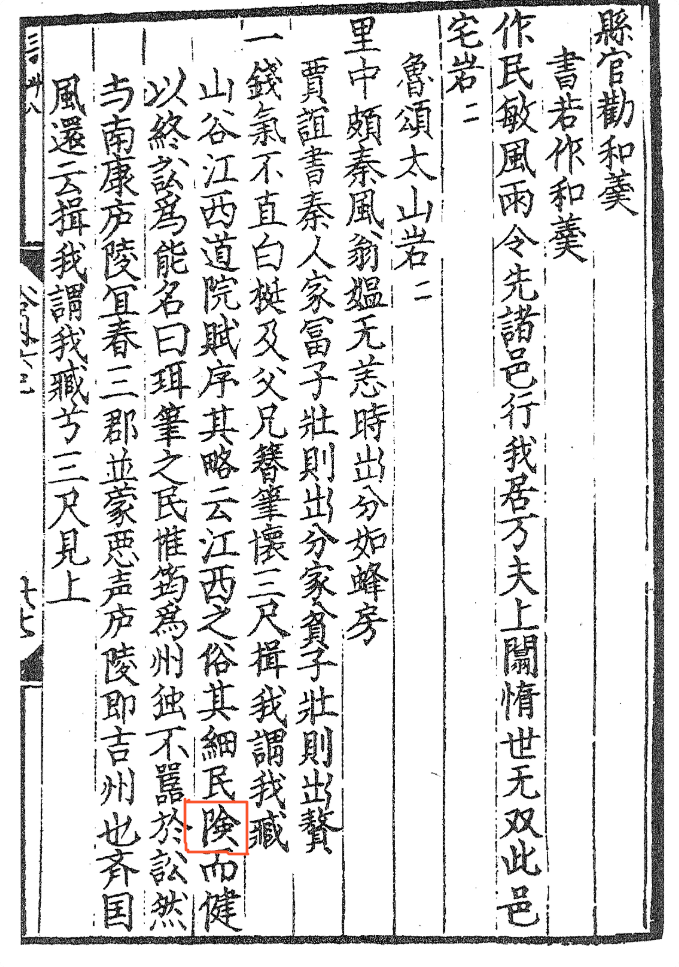 縣官勸和羹
書若作和羹
作民敏風雨令先諸邑行我居万夫上闒惰世无双此邑
宅岩二
魯頌太山岩二
里中頗秦風翁媼无恙時出分如蜂房
賈誼書秦人家富子壯則出分家貧子壯則出贅
一錢氣不直白梃及父兄簪筆懷三尺揖我謂我臧
山谷江西道院賦序其略云江西之俗其細民険而健
以終訟爲能名曰珥筆之民惟筠爲州独不嚚於訟然
与南康庐陵冝春三郡並蒙悪声庐陵即吉州也斉囯
風還云揖我謂我臧兮三尺見上